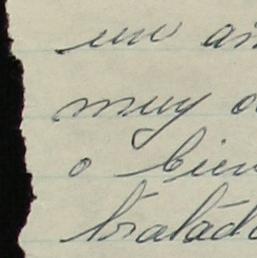 un an
muy o
o bien
tratado